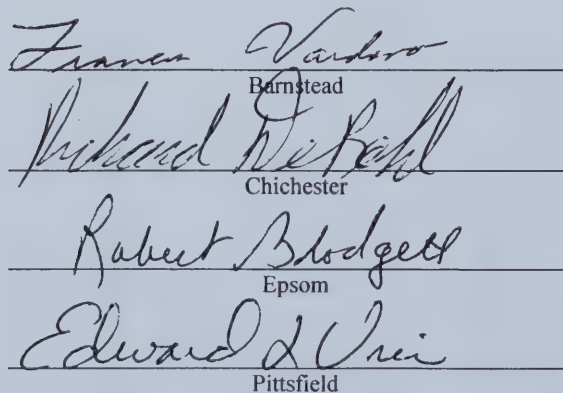 Frances Vardaro
Barnstead
Richard DeBold
Chichester
Robert Blodgett
Epsom
Edward L Vien
Pittsfield